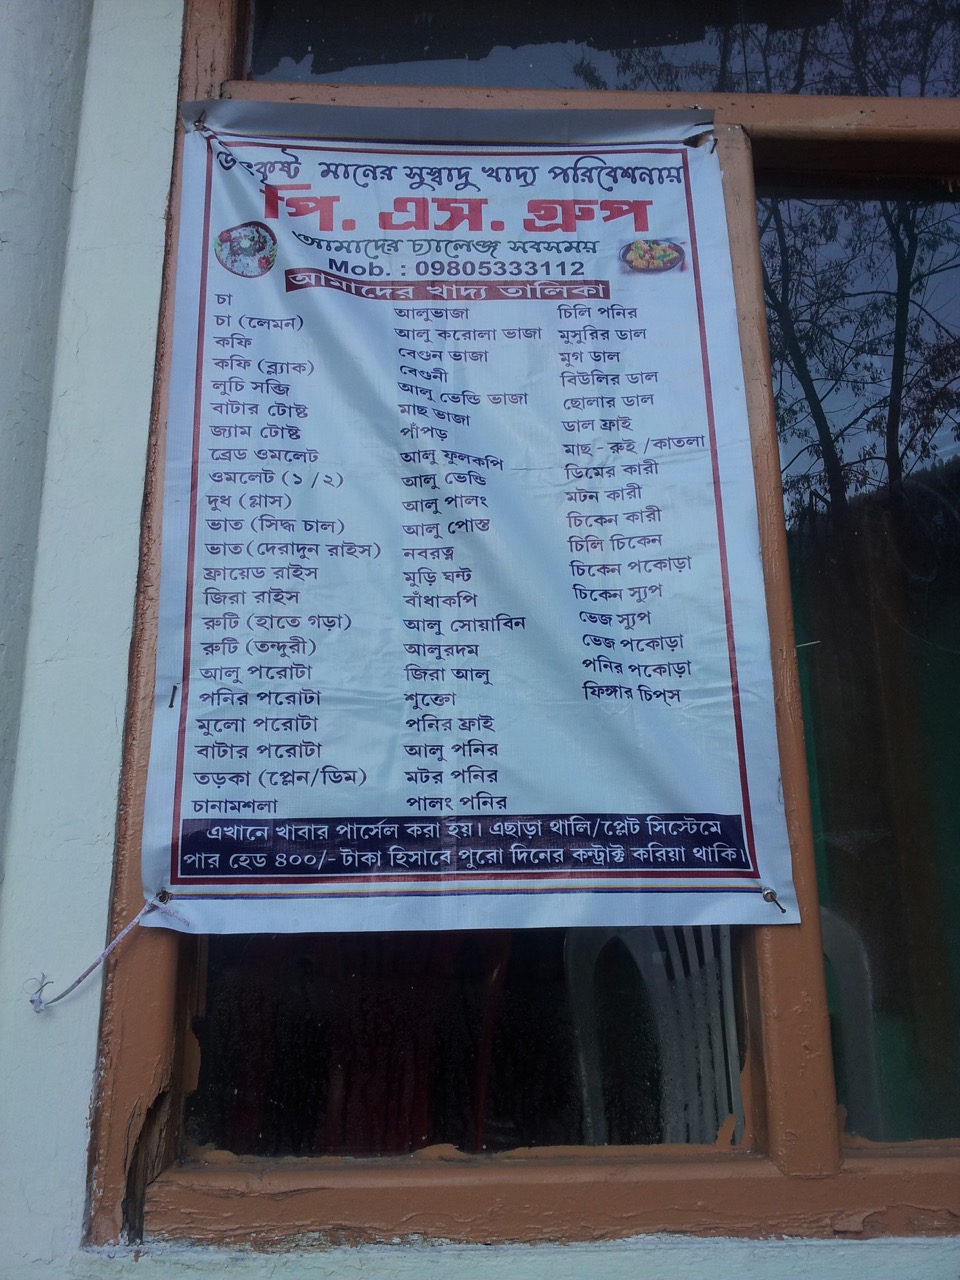 উৎকৃষ্ট মানের সুস্বাদু খাদ্য পরিবেশনায়
পি. এস. গ্রুপ
আমাদের চ্যালেঞ্জ সবসময়
Mob. : 09805333112
আমাদের খাদ্য তালিকা
চা
চা (লেমন)
কফি
কফি (ব্ল্যাক)
লুচি সব্জি
বাটার টোষ্ট
জ্যাম টোষ্ট
ব্রেড ওমলেট
ওমলেট (১/২)
দুধ (গ্লাস)
ভাত (সিদ্ধ চাল)
ভাত (দেরাদুন রাইস)
ফ্রায়েড রাইস
জিরা রাইস
রুটি (হাতে গড়া)
রুটি (তন্দুরী)
আলু পরোটা
পনির পরোটা
মুলো পরোটা
বাটার পরোটা
তড়কা (প্লেন/ডিম)
চানামশলা
আলুভাজা
আলু করোলা ভাজা
বেগুন ভাজা
বেগুনী
আলু ভেন্ডি ভাজা
মাছ ভাজা
পাঁপড়
আলু ফুলকপি
আলু ভেন্ডি
আলু পালং
আলু পোস্ত
নবরত্ন
মুড়ি ঘন্ট
বাঁধাকপি
আলু সোয়াবিন
আলুরদম
জিরা আলু
শুক্তো
পনির ফ্রাই
আলু পনির
মটর পনির
পালং পনির
চিলি পনির
মুসুরির ডাল
মুগ ডাল
বিউলির ডাল
ছোলার ডাল
ডাল ফ্রাই
মাছ - রুই /কাতলা
ডিমের কারী
মটন কারী
চিকেন কারী
চিলি চিকেন
চিকেন পকোড়া
চিকেন স্যুপ
ভেজ স্যুপ
ভেজ পকোড়া
পনির পকোড়া
ফিঙ্গার চিপ্স
এখানে খাবার পার্সেল করা হয়। এছাড়া থালি/প্লেট সিস্টেমে
পার হেড ৪০০/- টাকা হিসাবে পুরো দিনের কন্ট্রাক্ট করিয়া থাকি।